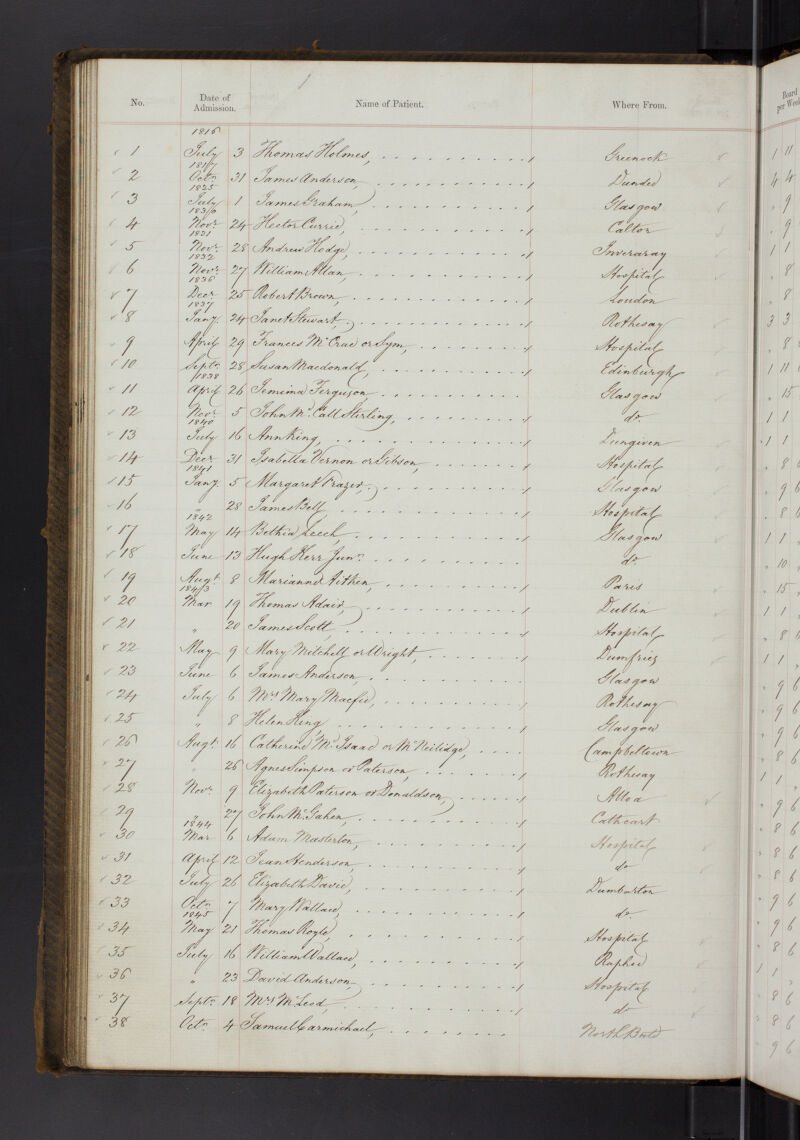 1
No. Date of Admission. Name of Patient. Where From. Board per Week
1816
1 July 3 Thomas Holmes, Greenock 1 11
1817
2 Octr. 31 James Anderson, Dundee 4 4
1825
3 July 1 James Graham, Glasgow " 9
1830
4 Novr. 24 Hector Currie, Calton " 9
1831
5 Novr. 28 Andrew Hodge, Inveraray 1 1
1832
6 Novr. 27 William Allan, Hospital " 8
1836
7 Decr. 25 Robert Brown, London " 8
1837
8 Jany. 24 Janet Stewart, Rothesay 3 3
9 April 29 Frances McCrae or Sym, Hospital " 8
10 Septr. 28 Susan Macdonald, Edinburgh 1 11
1838
11 April 26 Jemima Ferguson Glasgow " 15
12 Novr. 5 John McCall Stirling, do. 1 1
1840
13 July 16 Ann King, Dungiven 1 1
14 Decr. 31 Isabella Vernon or Gibson, Hospital " 8 6
1841
15 Jany. 5 Margaret Frazer, Glasgow " 9 6
16 " 28 James Bell Hospital " 8 6
1842
17 May 14 Bethia Leech, Glasgow 1 1
18 June 13 Hugh Kerr Junr. do. " 10
19 Augt. 8 Marianne Aitken, Paris " 15
1843
20 Mar 19 Thomas Adair, Dublin 1 1
21 " 20 James Scott, Hospital " 8 6
22 May 9 Mary Mitchell or Wright, Dumfries 1 1
23 June 6 James Anderson, Glasgow " 9 6
24 July 6 Mrs Mary Macfie, Rothesay " 9 6
25 " 8 Helen King Glasgow " 9 6
26 Augt. 16 Catherine McIsaac or McNeilidge, Campbeltown " 8 6
27 " 26 Agnes Simpson or Paterson, Rothesay 1 1
28 Novr. 9 Elizabeth Paterson or Donaldson, Alloa " 9 6
29 " 27 John McGahen, Cathcart " 8 6
1844
30 Mar 6 Adam Masterton, Hospital " 8 6
31 April 12 Jean Henderson, do " 8 6
32 July 26 Elizabeth Davie, Dumbarton " 9 6
33 Octr. 7 Mary Wallace, do. " 9 6
1845
34 May 21 Thomas Royle, Hospital " 8 6
35 July 16 William Wallace, Raphoe 1 1
36 " 23 David Anderson Hospital " 8 6
37 Septr. 18 Mrs McLeod, do " 8 6
38 Octr. 4 Samuel Carmichael, North Bute " 9 6